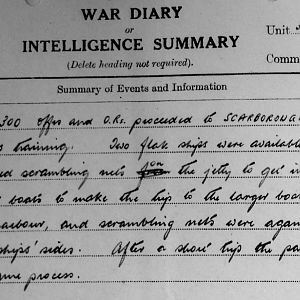 WAR DIARY
or
INTELLIGENCE SUMMARY
(Delete heading not required).
Unit
Comm
Summary of Events and Information
300 offrs and O.Rs. proceeded to SCARBOROUG
training. Two flak ships were available
scrambling nets on the jetty to get in
boats to make the trip to the larger boat
arbour, and scrambling nets were again
ships' sides. After a short trip the pa
ame process.